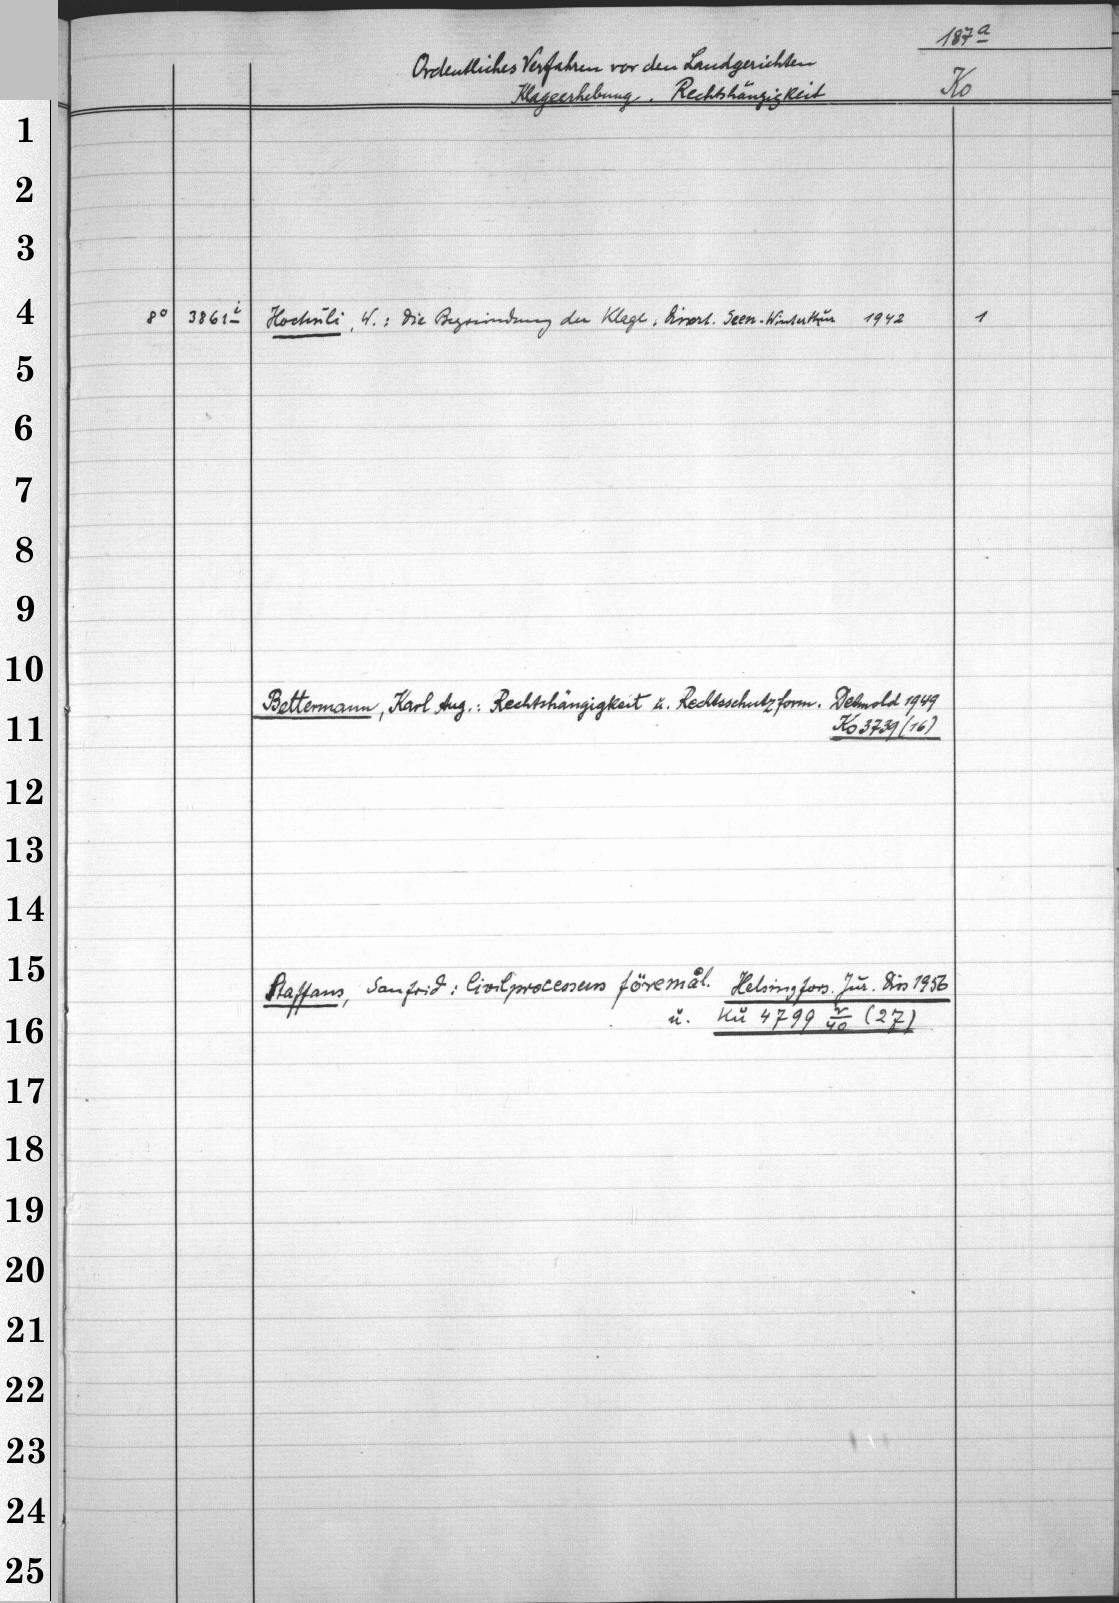 187a
Ordentliches Verfahren vor den Landgerichten
Klageerhebung. Rechtshängigkeit
Ko
1
2
3
4
8° 3861i Hochuli, W.: Die Begründung der Klage. Seen-Winterthur 1942 1
5
6
7
8
9
10
Bettermann, Karl Aug.: Rechtshängigkeit u. Rechtsschutzform. Detmold 1949
11
Ko 3739 (16)
12
13
14
15
Staffans, Sanfrid: Civilprocessens föremål. Helsingfors. Jur. Diss 1956
16
u. Ku 4799 (27)
17
18
19
20
21
22
23
24
25